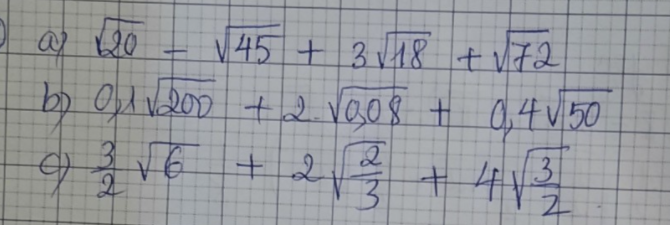 a) √20 - √45 + 3√18 + √72
b) 0,1√200 + 2.√0,08 + 0,4√50
c) 3/2 √6 + 2√(2/3) + 4√(3/2)